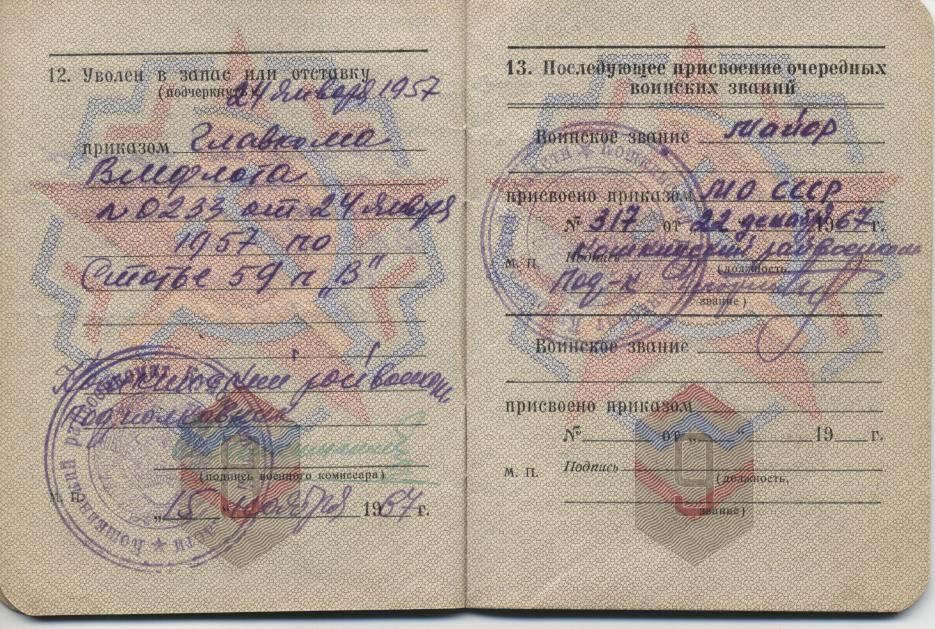 12. Уволен в запас или отставку
(подчеркнуть) 24 января 1957
приказом Главкома
ВМФлота
№ 0233 от 24 января
1957 по
Статье 59 п „В"
райвоенком
Подполковник
(подпись военного комиссара)
М. П.
„15" ноября 1967 г.
13. Последующее присвоение очередных
воинских званий
Воинское звание майор
присвоено приказом МО СССР
№ 317 от 22 декабря 1967 г.
райвоенком
М. П. Подпись (должность,
Под-к
звание)
Воинское звание
присвоено приказом
№ от „ 19 г.
М. П. Подпись
(должность,
звание)